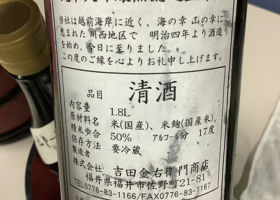 当社は越前海岸に近く、海の幸 山の幸に
恵まれた川西地区で 明治四年より酒造り
を始め、今日に至りました。
この度のご縁を心よりお喜び申し上げます。
品目 清酒
内容量 1.8L
原材料名 米(国産)、米麹(国産米)、
精米歩合 50% アルコール分 17度
保存方法 要冷蔵。
製造者 株式会社 吉田金右衛門商店
福井県福井市佐野町21-81
TEL0776-83-1166/FAX0776-83-